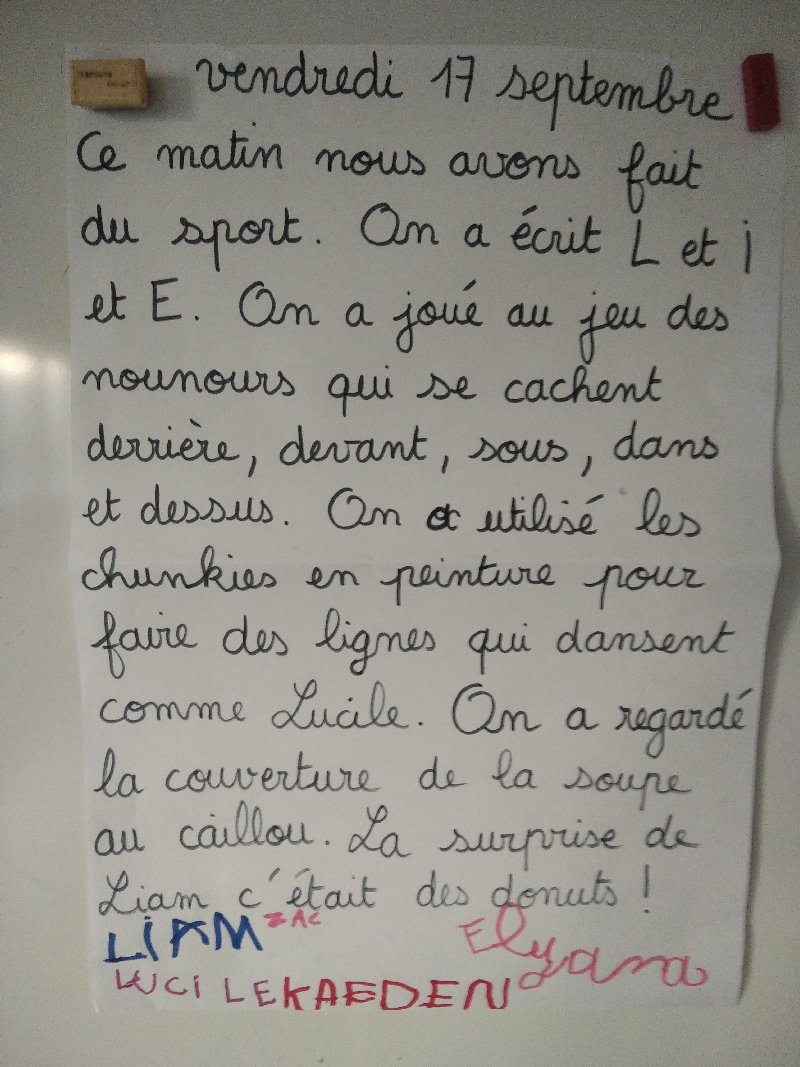 vendredi 17 septembre
Ce matin nous avons fait
du sport. On a écrit L et i
et E. On a joué au jeu des
nounours qui se cachent
derrière, devant, sous, dans
et dessus. On a utilisé les
chunkies en peinture pour
faire des lignes qui dansent
comme Lucile. On a regardé
la couverture de la soupe
au caillou. La surprise de
Liam c'était des donuts !
LiAM ZAC Elyana
LUCiLE KAEDEN